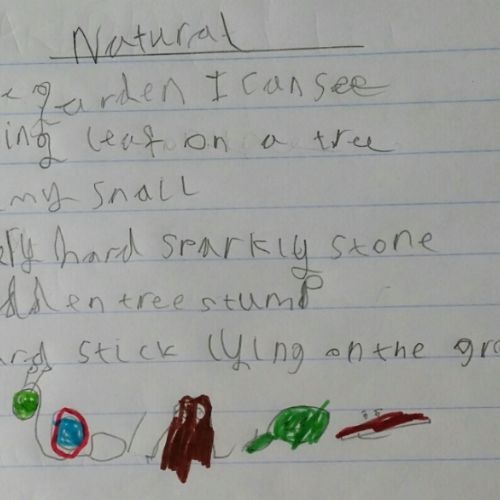 Natural
garden I can see
ing leaf on a tree
my snall
hard sparkly stone
dden tree stump
stick lying on the gro